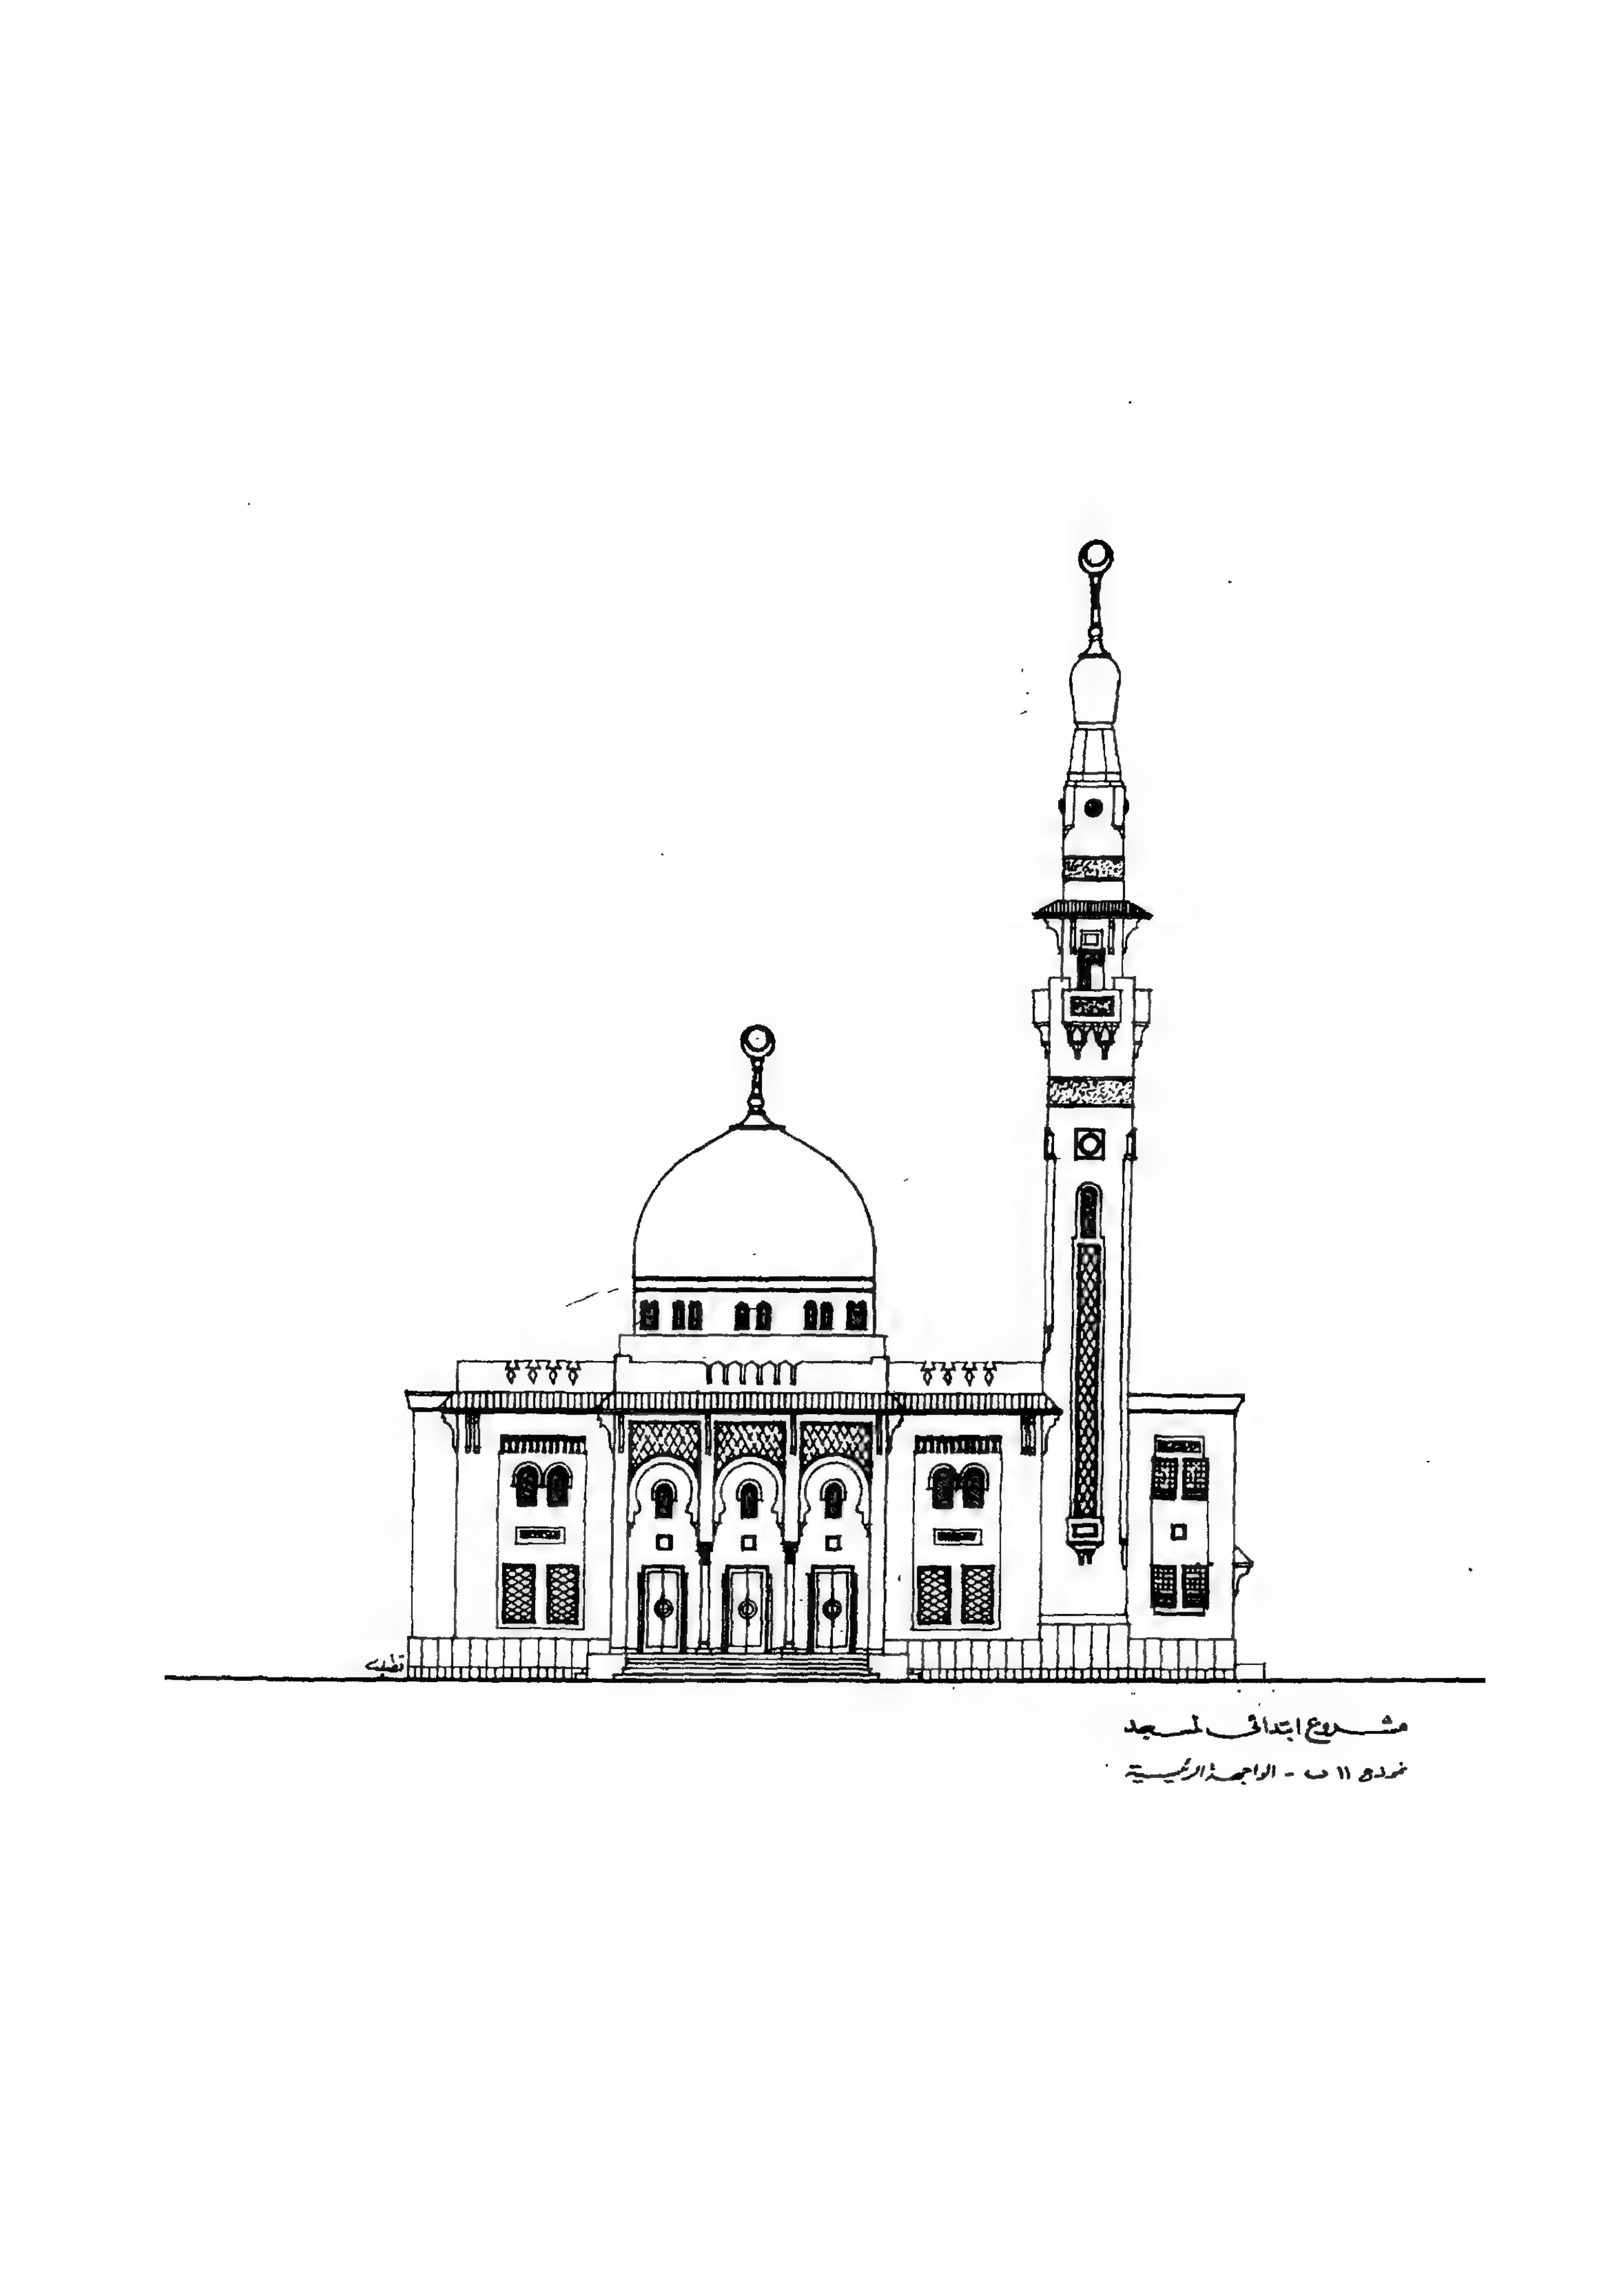 مشروع ابتدائى لمسجد
نموذج ١١ ب - الواجهة الرئيسية